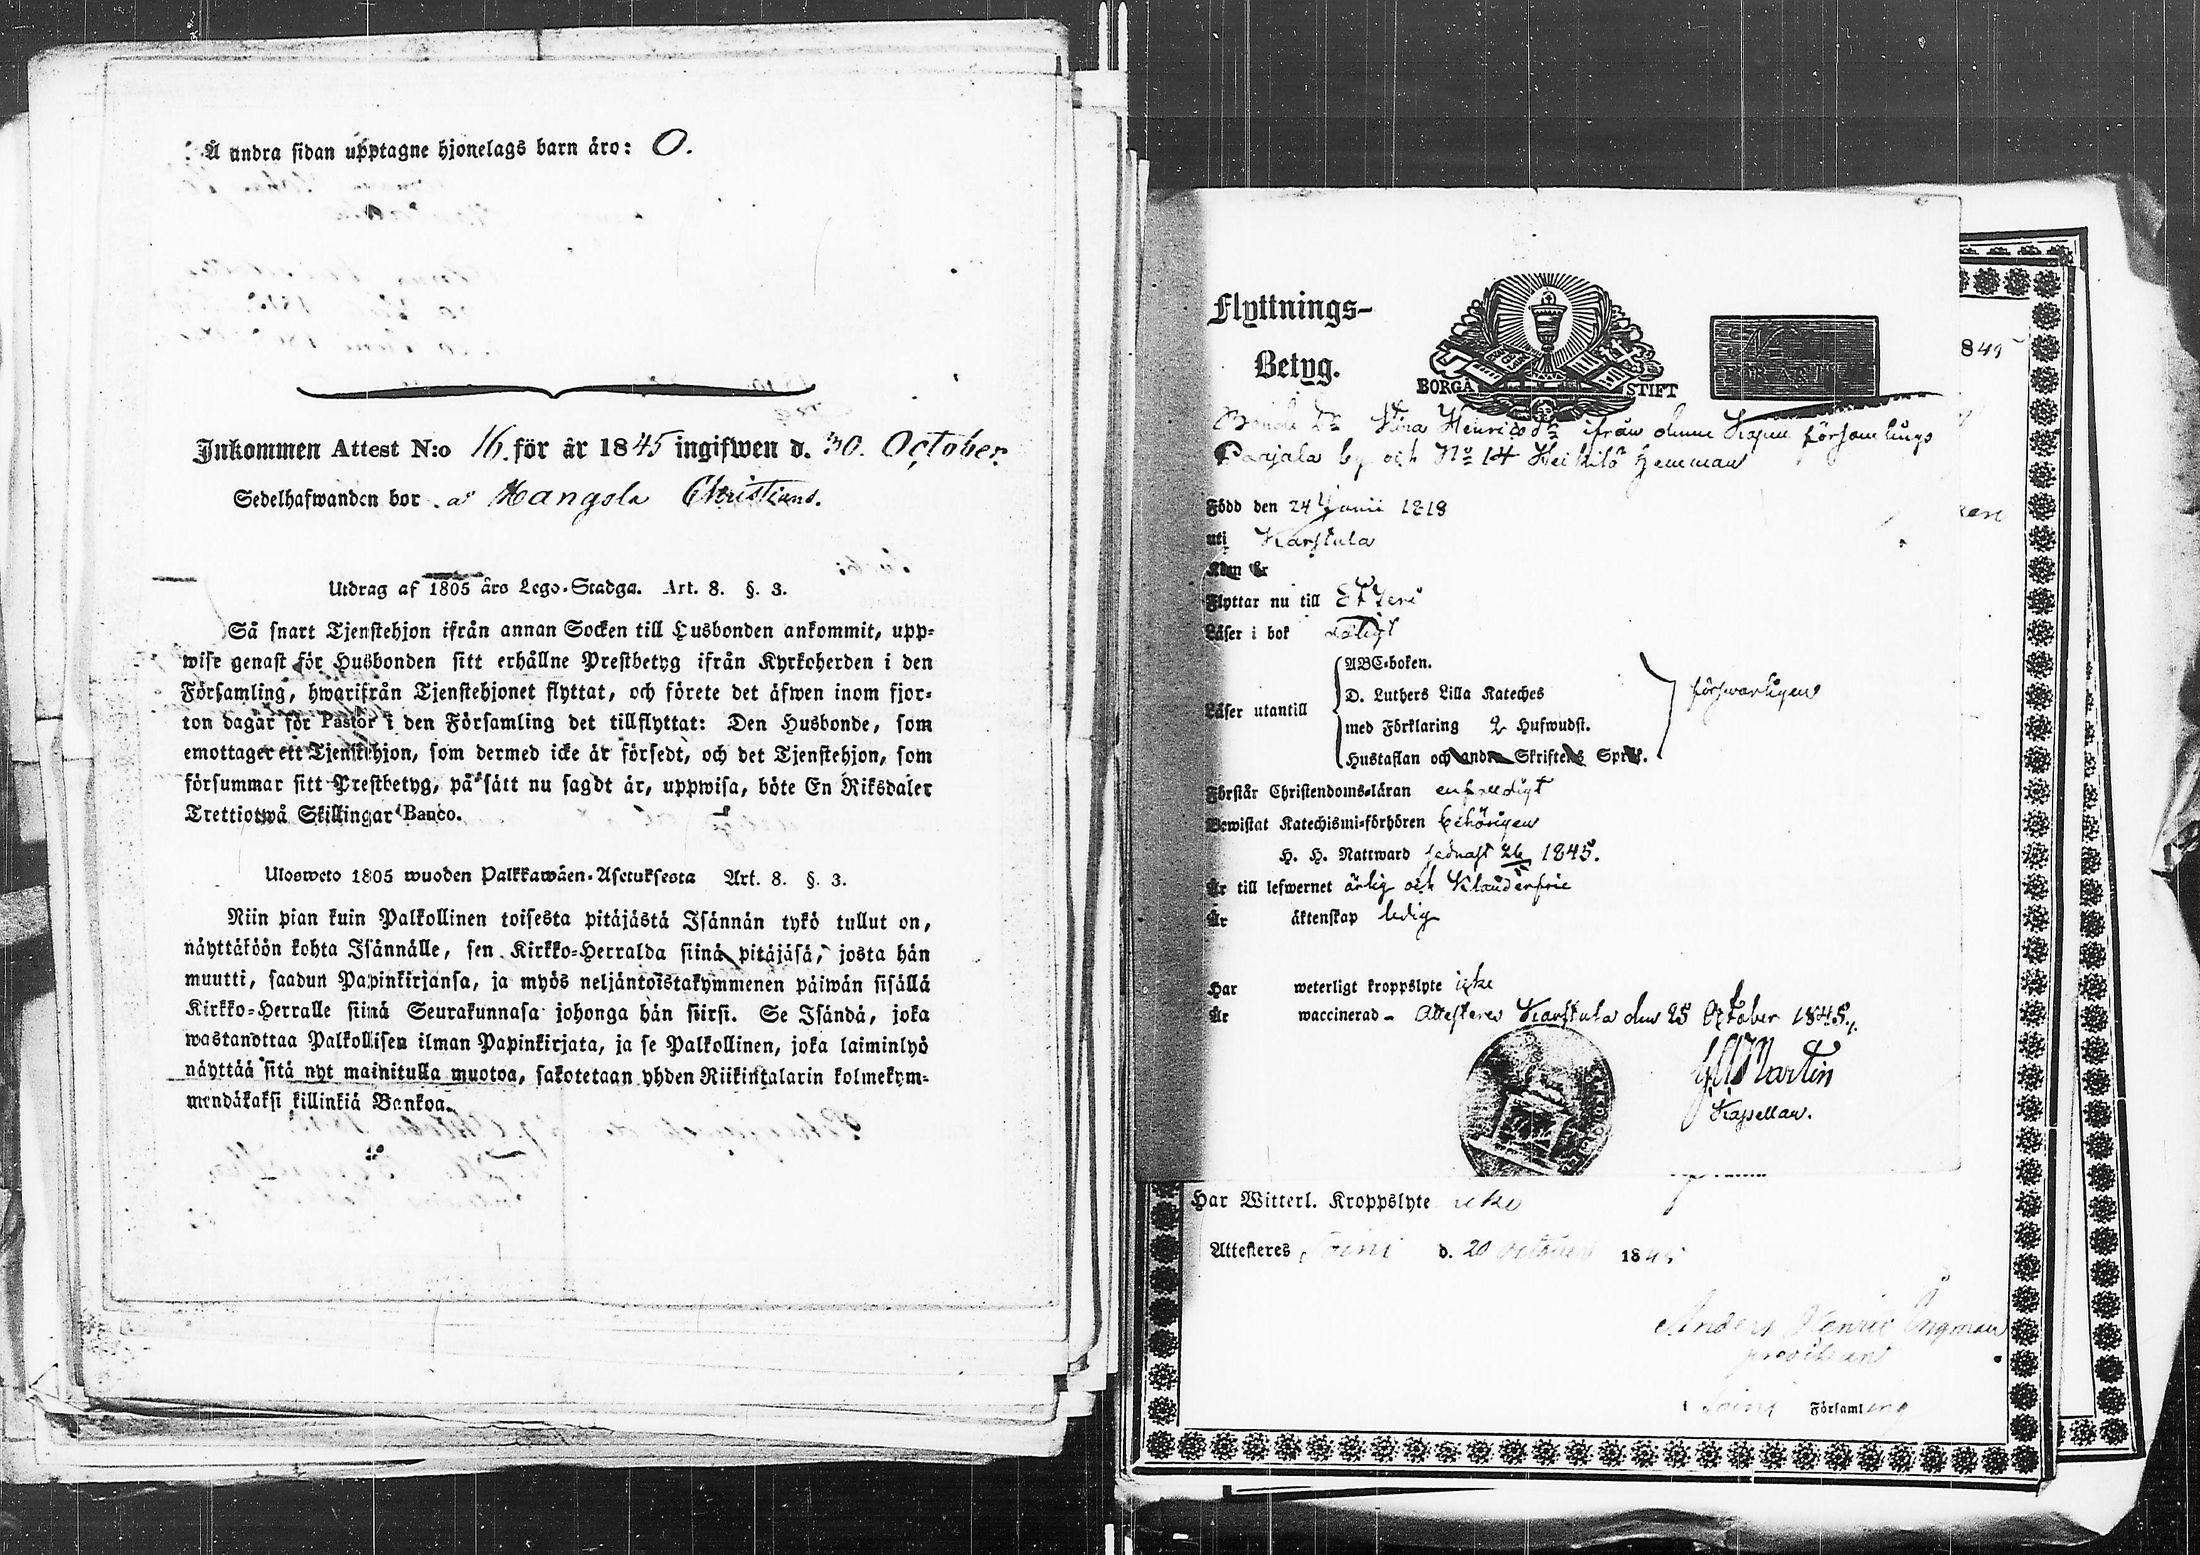 Å andra sidan upptagne hjonelags barn äro: 0.
Inkommen Attest N:o 16. för år 1845 ingifwen d. 30. October.
Sedelhafwanden bor å Mangsla Christians.
Utdrag af 1805 års Lego-Stadga. Art. 8. §. 3.
Så snart Tjenstehjon ifrån annan Socken till Husbonden ankommit, upp-
wise genast för Husbonden sitt erhållne Prestbetyg ifrån Kyrkoherden i den
Församling, hwarifrån Tjenstehjonet flyttat, och förete det äfwen inom fjor-
ton dagar för Pastor i den Församling det tillflyttat: Den Husbonde, som
emottager ett Tjenstehjon, som dermed icke är försedt, och det Tjenstehjon, som
försummar sitt Prestbetyg, på sätt nu sagdt är, uppwisa, böte En Riksdaler
Trettiotwå Skillingar Banco.
Ulosweto 1805 wuoden Palkkawäen-Asetuksesta Art. 8. §. 3.
Niin pian kuin Palkollinen toisesta pitäjästä Isännän tykö tullut on,
näyttäköön kohta Isännälle, sen Kirkko-Herralda siinä pitäjäsä, josta hän
muutti, saadun Papinkirjansa, ja myös neljäntoistakymmenen päiwän sisällä
Kirkko-Herralle siinä Seurakunnasa johonga hän siirsi. Se Isändä, joka
wastanottaa Palkollisen ilman Papinkirjata, ja se Palkollinen, joka laiminlyö
näyttää sitä nyt mainitulla muotoa, sakotetaan yhden Riikintalarin kolmekym-
mendäkaksi killinkiä Bankoa.
Flyttnings-
Betyg.
BORGÅ STIFT
Bonde Dr Stina Henricsdr ifrån denna Kapell församlings
Paajala by och No 14 Heikilä Hemman
Född den 24 Junii 1818
uti Karstula
Flyttar nu till Etseri
Läser i bok
Läser utantill
ABC-boken.
D. Luthers Lilla Kateches
med Förklaring 2 Hufwudst.
Hustaflan och andra Skriftens Språk.
förswarligen
Förstår Christendoms-läran enfaldigt
Bewistat Katechismi-förhören behörigen
H. H. Nattward sednast 1845.
Är till lefwernet ärlig och Klanderfrie
Är äktenskap ledig
Har weterligt kroppslyte icke
Är waccinerad - Attesteres Karstula den 25 October 1845.
Martin
Kapellan.
Har Witterl. Kroppslyte icke
Attesteres Soini d. 20 October 1845
Anders Henric Ångman
Soini Församling